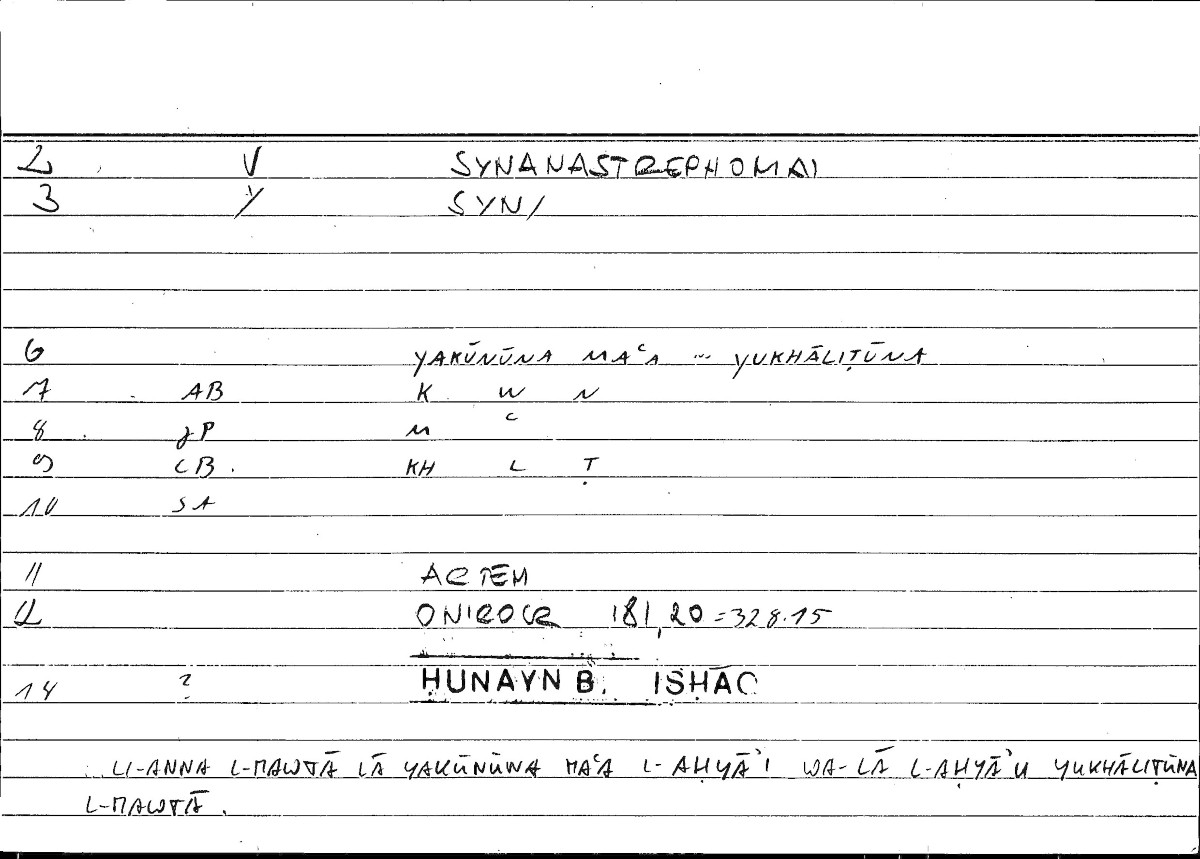 2 V SYNANASTREPHOMAI
3 Y SYN/
6 YAKŪNŪNA MAʿA ... YUKHĀLIṬŪNA
7 AB K W N
8 gP M ʿ
9 CB. KH L Ṭ
10 SA
11 ARTEM
12 ONIROCR 181,20 = 328.15
14 ? ḤUNAYN B. ISḤĀQ
LI-ANNA L-MAWTĀ LĀ YAKŪNŪNA MAʿA L-AḤYĀʾI WA-LĀ L-AḤYĀʾU YUKHĀLIṬŪNA
L-MAWTĀ.